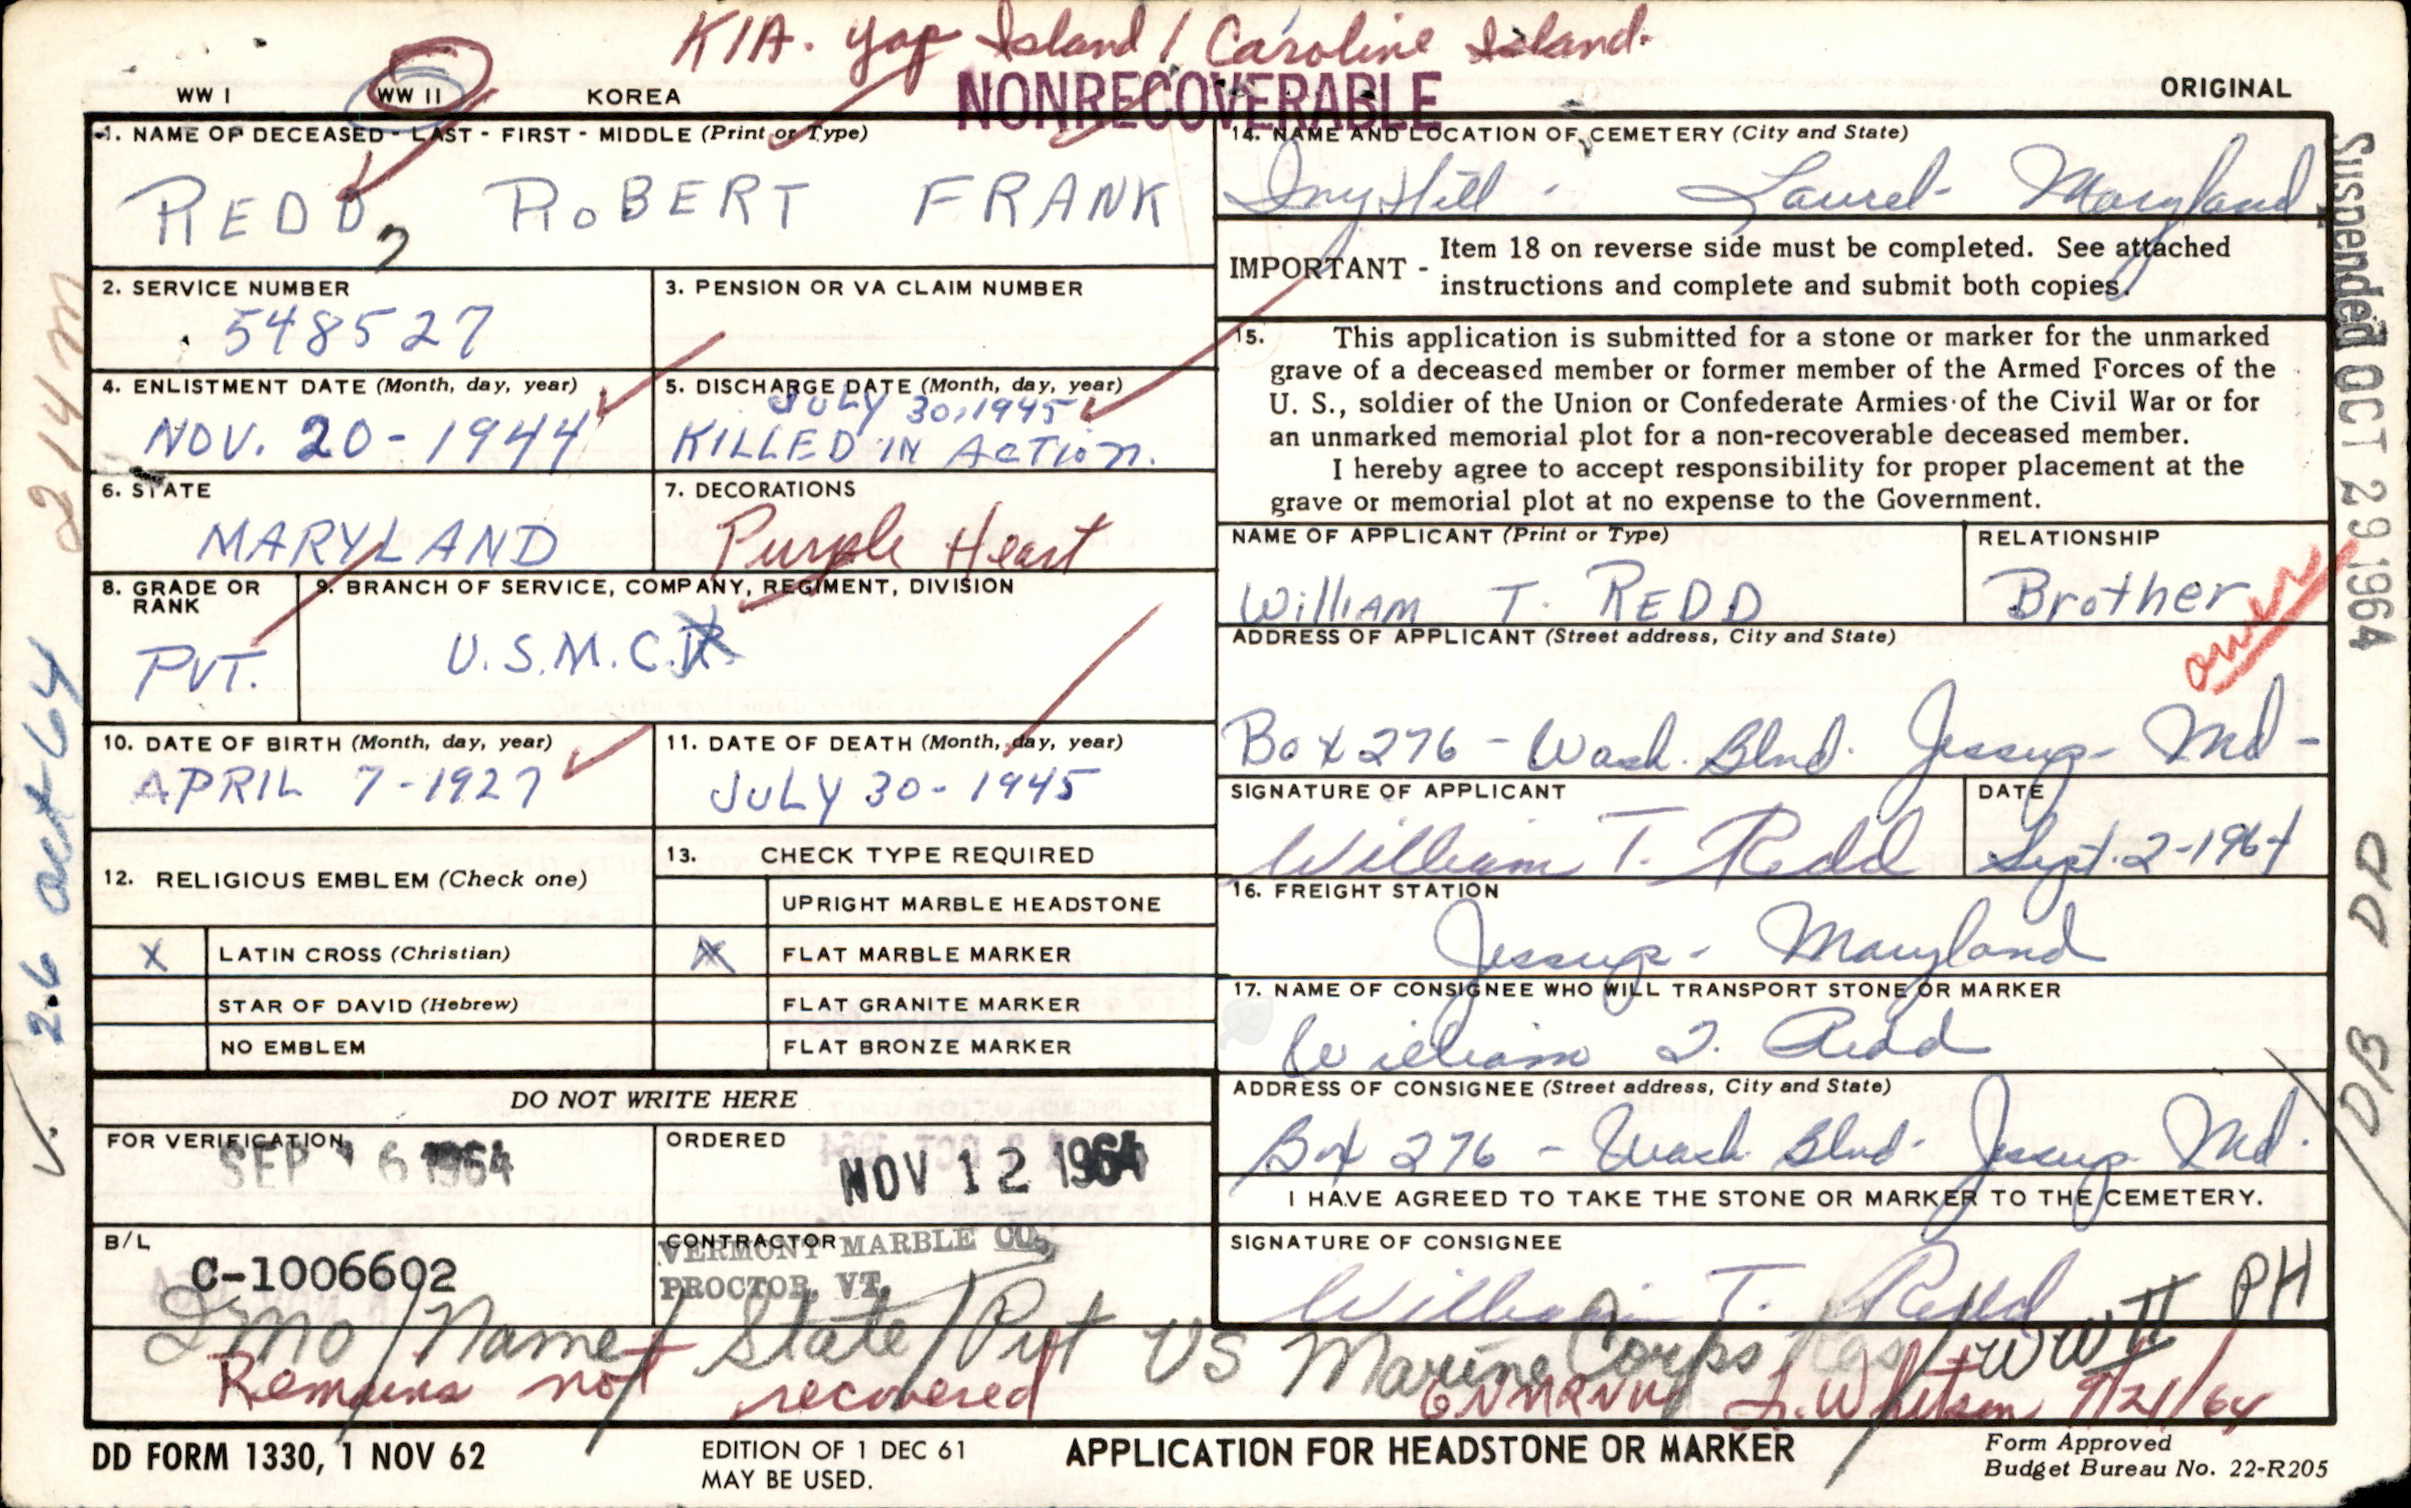 KIA. Yap Island / Caroline Island.
NONRECOVERABLE
WW I WW II KOREA ORIGINAL
1. NAME OF DECEASED - LAST - FIRST - MIDDLE (Print or Type)
REDD, ROBERT FRANK
2. SERVICE NUMBER
548527
3. PENSION OR VA CLAIM NUMBER
4. ENLISTMENT DATE (Month, day, year)
NOV. 20-1944
5. DISCHARGE DATE (Month, day, year)
JULY 30, 1945
KILLED IN ACTION.
6. STATE
MARYLAND
7. DECORATIONS
Purple Heart
8. GRADE OR RANK
PVT.
9. BRANCH OF SERVICE, COMPANY, REGIMENT, DIVISION
U.S.M.C.R.
10. DATE OF BIRTH (Month, day, year)
APRIL 7-1927
11. DATE OF DEATH (Month, day, year)
JULY 30-1945
12. RELIGIOUS EMBLEM (Check one)
X LATIN CROSS (Christian)
STAR OF DAVID (Hebrew)
NO EMBLEM
13. CHECK TYPE REQUIRED
UPRIGHT MARBLE HEADSTONE
X FLAT MARBLE MARKER
FLAT GRANITE MARKER
FLAT BRONZE MARKER
DO NOT WRITE HERE
FOR VERIFICATION
SEP 16 1964
ORDERED
NOV 12 1964
B/L
C-1006602
CONTRACTOR
VERMONT MARBLE CO.,
PROCTOR, VT.
14. NAME AND LOCATION OF CEMETERY (City and State)
Ivy Hill - Laurel - Maryland
IMPORTANT - Item 18 on reverse side must be completed. See attached
instructions and complete and submit both copies.
15. This application is submitted for a stone or marker for the unmarked
grave of a deceased member or former member of the Armed Forces of the
U. S., soldier of the Union or Confederate Armies of the Civil War or for
an unmarked memorial plot for a non-recoverable deceased member.
I hereby agree to accept responsibility for proper placement at the
grave or memorial plot at no expense to the Government.
NAME OF APPLICANT (Print or Type)
William T. REDD
RELATIONSHIP
Brother
over
ADDRESS OF APPLICANT (Street address, City and State)
Box 276 - Wash. Blvd. Jessup - Md -
SIGNATURE OF APPLICANT
William T. Redd
DATE
Sept. 2-1964
16. FREIGHT STATION
Jessup - Maryland
17. NAME OF CONSIGNEE WHO WILL TRANSPORT STONE OR MARKER
William T. Redd
ADDRESS OF CONSIGNEE (Street address, City and State)
Box 276 - Wash. Blvd. Jessup Md.
I HAVE AGREED TO TAKE THE STONE OR MARKER TO THE CEMETERY.
SIGNATURE OF CONSIGNEE
William T. Redd
IMO / Name / State / Pvt US Marine Corps Res / WW II PH
Remains not recovered
L. Whitson 9/21/64
DD FORM 1330, 1 NOV 62
EDITION OF 1 DEC 61
MAY BE USED.
APPLICATION FOR HEADSTONE OR MARKER
Form Approved
Budget Bureau No. 22-R205
Suspended OCT 29 1964
DD
DB
V. 26 Oct 64